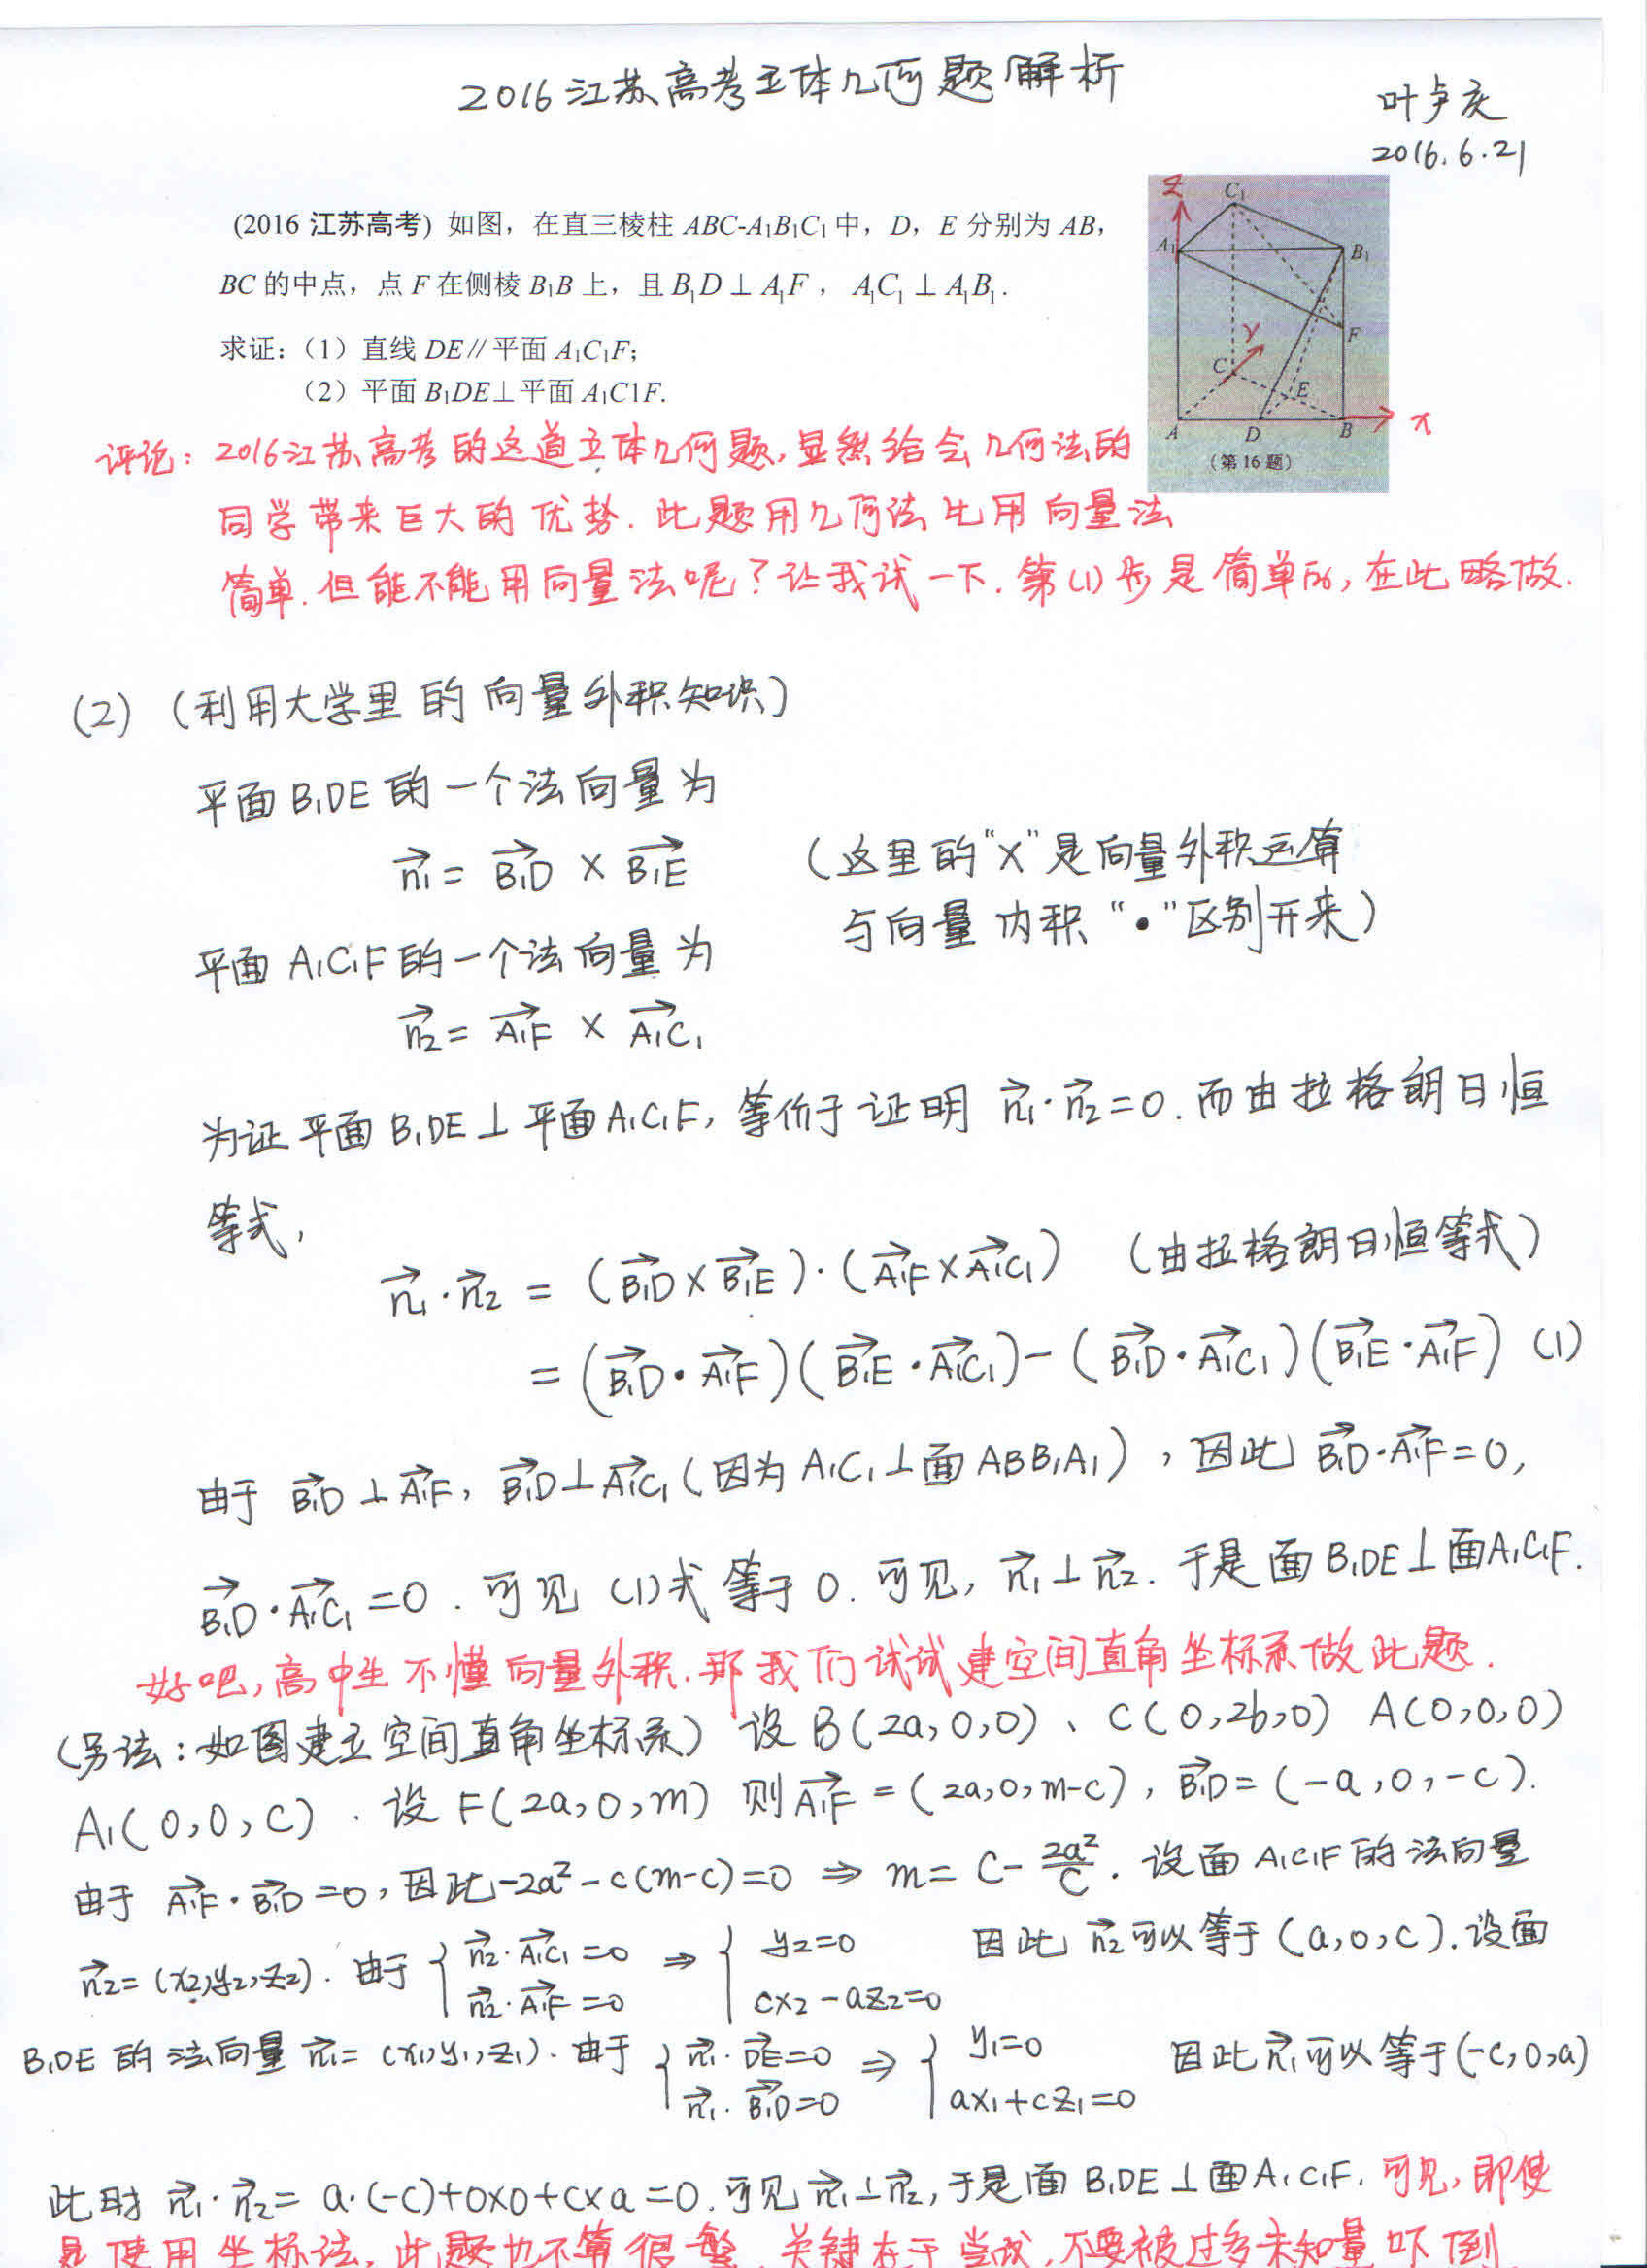 2016江苏高考立体几何题解析
叶卢庆
2016.6.21
(2016 江苏高考) 如图，在直三棱柱 ABC-A₁B₁C₁ 中，D，E 分别为 AB，
BC 的中点，点 F 在侧棱 B₁B 上，且 B₁D⊥A₁F，A₁C₁⊥A₁B₁.
求证：（1）直线 DE∥平面 A₁C₁F；
（2）平面 B₁DE⊥平面 A₁C1F.
Z
C₁
A₁
B₁
F
y
C
E
A
D
B
x
(第 16 题)
评论：2016江苏高考的这道立体几何题,显然给会几何法的
同学带来巨大的优势. 此题用几何法比用向量法
简单. 但能不能用向量法呢？让我试一下. 第(1)步是简单的, 在此略做.
(2) (利用大学里的向量外积知识)
平面B₁DE的一个法向量为
n₁⃗ = B₁D⃗ × B₁E⃗ (这里的“×”是向量外积运算
与向量内积“•”区别开来)
平面A₁C₁F的一个法向量为
n₂⃗ = A₁F⃗ × A₁C₁⃗
为证平面B₁DE⊥平面A₁C₁F, 等价于证明 n₁⃗·n₂⃗=0. 而由拉格朗日恒
等式,
n₁⃗·n₂⃗ = (B₁D⃗×B₁E⃗)·(A₁F⃗×A₁C₁⃗) (由拉格朗日恒等式)
= (B₁D⃗•A₁F⃗)(B₁E⃗•A₁C₁⃗)-(B₁D⃗•A₁C₁⃗)(B₁E⃗•A₁F⃗) (1)
由于 B₁D⃗⊥A₁F⃗, B₁D⃗⊥A₁C₁⃗ (因为A₁C₁⊥面ABB₁A₁), 因此 B₁D⃗•A₁F⃗=0,
B₁D⃗•A₁C₁⃗=0. 可见 (1)式等于0. 可见, n₁⃗⊥n₂⃗. 于是面B₁DE⊥面A₁C₁F.
好吧, 高中生不懂向量外积. 那我们试试建空间直角坐标系做此题.
(另法：如图建立空间直角坐标系) 设B(2a,0,0)、C(0,2b,0) A(0,0,0)
A₁(0,0,C). 设F(2a,0,m) 则A₁F⃗=(2a,0,m-c), B₁D⃗=(-a,0,-c).
由于 A₁F⃗•B₁D⃗=0, 因此-2a²-c(m-c)=0 ⇒ m=C-2a²/C. 设面A₁C₁F的法向量
n₂⃗=(x₂,y₂,z₂). 由于 { n₂⃗·A₁C₁⃗=0 n₂⃗·A₁F⃗=0 ⇒ { y₂=0 cx₂-az₂=0 因此 n₂⃗可以等于(a,0,c). 设面
B₁DE的法向量n₁⃗=(x₁,y₁,z₁). 由于 { n₁⃗·DE⃗=0 n₁⃗·B₁D⃗=0 ⇒ { y₁=0 ax₁+cz₁=0 因此n₁⃗可以等于(-c,0,a)
此时 n₁⃗·n₂⃗=a·(-c)+0×0+c×a=0. 可见n₁⃗⊥n₂⃗, 于是面B₁DE⊥面A₁C₁F. 可见, 即使
是使用坐标法, 此题也不算很繁. 关键在于尝试, 不要被过多未知量吓倒